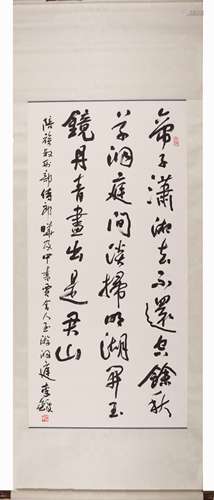 帝子瀟湘去不還空餘秋
草洞庭間淡掃明湖開玉
鏡丹青畫出是君山
陪族叔刑部侍郎曄及中書賈舍人至游洞庭 李鐸